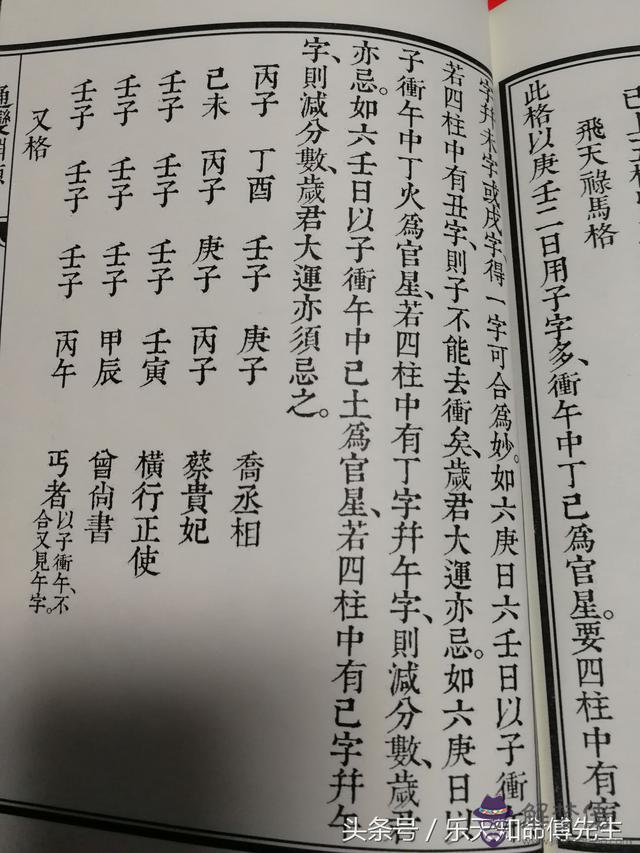 飛天祿馬格
此格以庚壬二日用子字多、衝午中丁己爲官星。要四柱中有寅
字幷未字或戌字、得一字可合爲妙。如六庚日六壬日以子衝
若四柱中有丑字、則子不能去衝矣、歲君大運亦忌。如六庚日以
子衝午中丁火爲官星、若四柱中有丁字幷午字、則減分數、歲君
亦忌。如六壬日以子衝午中己土爲官星、若四柱中有己字幷午
字、則減分數、歲君大運亦須忌之。
丙子 丁酉 壬子 庚子 喬丞相
己未 丙子 庚子 丙子 蔡貴妃
壬子 壬子 壬子 壬寅 橫行正使
壬子 壬子 壬子 甲辰 曾尙書
壬子 壬子 壬子 丙午 丐者以子衝午、不合又見午字。
又格
通變淵源
头条号 / 乐天知命傅先生